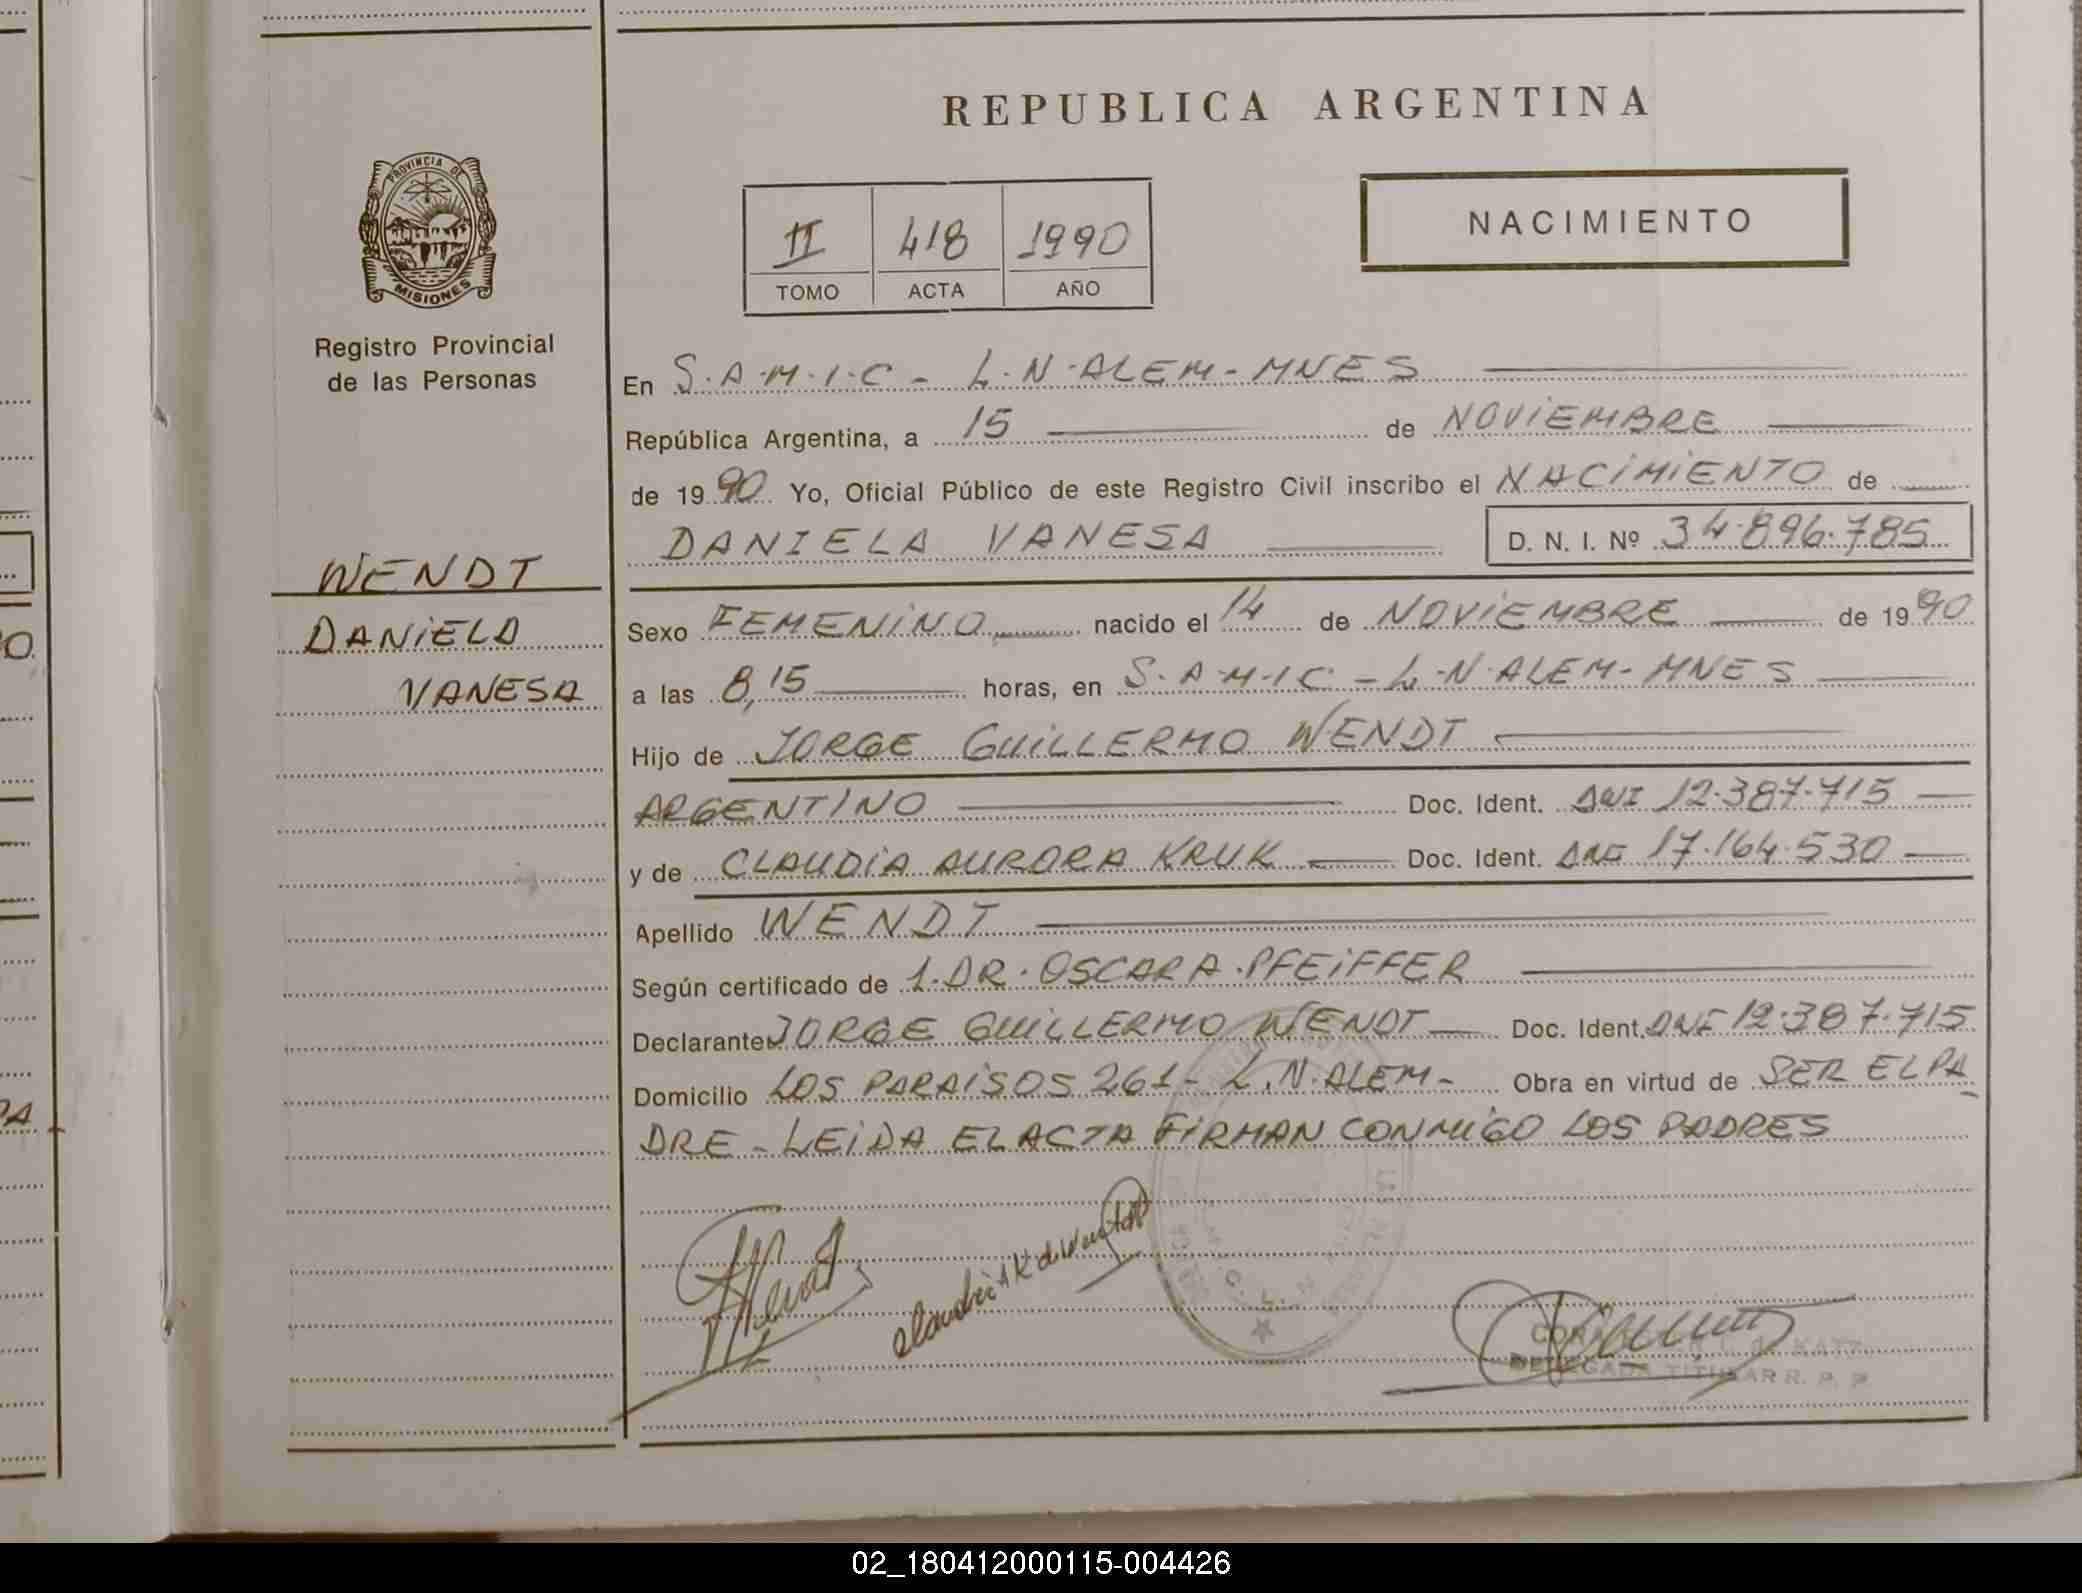 REPUBLICA ARGENTINA
PROVINCIA DE
MISIONES
Registro Provincial
de las Personas
II 418 1990
TOMO ACTA AÑO
NACIMIENTO
WENDT
DANIELA
VANESA
En S.A.M.I.C - L.N.ALEM-MNES
República Argentina, a 15 de NOVIEMBRE
de 1990 Yo, Oficial Público de este Registro Civil inscribo el NACIMIENTO de
DANIELA VANESA D. N. I. Nº 34.896.785
Sexo FEMENINO nacido el 14 de NOVIEMBRE de 1990
a las 8,15 horas, en S.A.M.I.C - L.N.ALEM-MNES
Hijo de JORGE GUILLERMO WENDT
ARGENTINO Doc. Ident. DNI 12.387.715
y de CLAUDIA AURORA KRUK Doc. Ident. DNI 17.164.530
Apellido WENDT
Según certificado de 1.DR.OSCAR A.PFEIFFER
Declarante JORGE GUILLERMO WENDT Doc. Ident. DNI 12.387.715
Domicilio LOS PARAISOS 261- L.N.ALEM- Obra en virtud de SER EL PA
DRE - LEIDA EL ACTA FIRMAN CONMIGO LOS PADRES
DELEGADA TITULAR R. P. P.
02_180412000115-004426